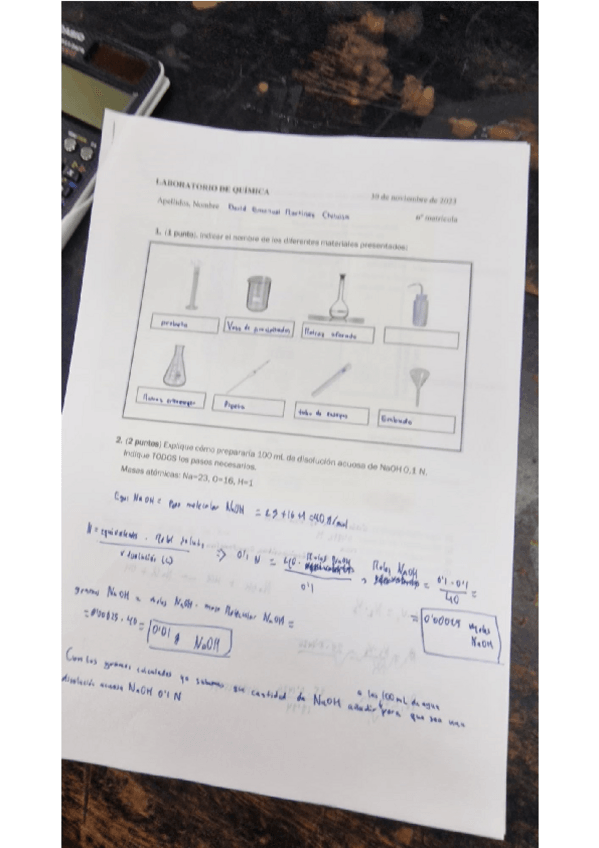 LABORATORIO DE QUÍMICA
de noviembre de 2023
Apellidos, Nombre David Martínez
nº matrícula
1. (1 punto). Indicar el nombre de los diferentes materiales presentados:
probeta
Vaso de precipitados
Matraz aforado
Matraz erlenmeyer
Pipeta
tubo de ensayo
Embudo
2. (2 puntos) Explique cómo prepararía 100 mL de disolución acuosa de NaOH 0,1 N.
Indique TODOS los pasos necesarios.
Masas atómicas: Na=23, O=16, H=1
NaOH = Peso molecular NaOH = 23+16+1=40 g/mol
N = equivalente · soluto
V disolución (L)
=> 0'1 N = 40 · Moles
0'1
Moles NaOH = 0'1 · 0'1
40
=
= 0'00025 moles
NaOH
gramos NaOH = moles NaOH · masa Molecular NaOH =
= 0'00025 · 40 = 0'01 g NaOH
Con los gramos calculados ya sabemos cantidad de NaOH añadir a los 100 mL de agua
para que sea una
disolución acuosa NaOH 0'1 N